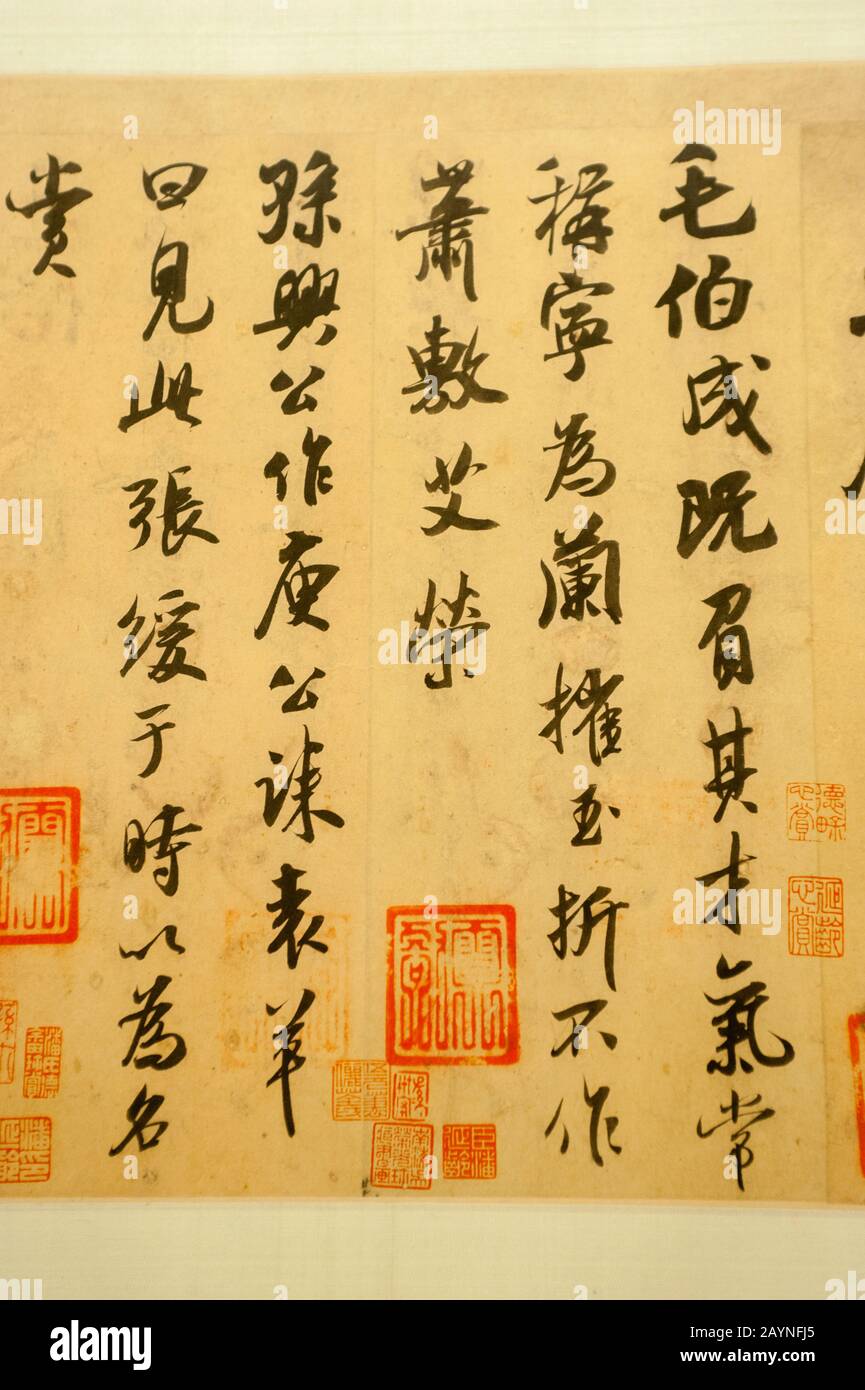 毛伯成既負其才氣常
稱寧為蘭摧玉折不作
蕭敷艾榮
孫興公作庾公誄袁羊
曰見此張緩于時以為名
賞
alamy
Image ID: 2AYNFJ5
www.alamy.com